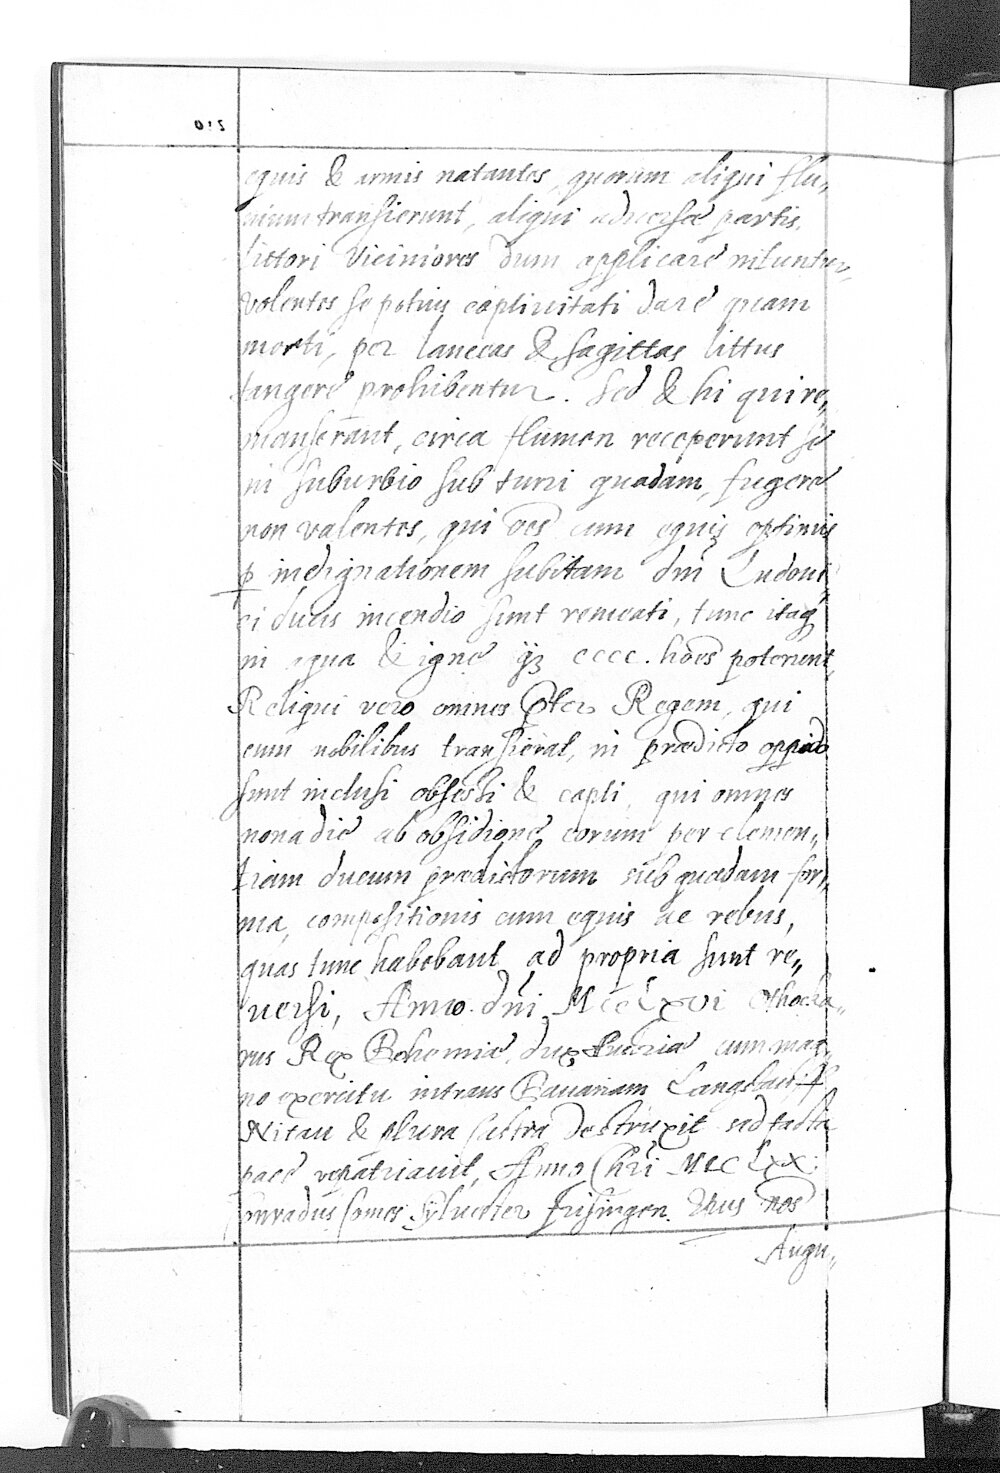 equis & armis natantes, quorum aliqui flu„
uium transierunt, aliqui aduersæ partis
littori viciniores dum applicare nituntur
volentes se potius captiuitati dare quam
morti, per lanceas & sagittas littus
tangere prohibentur. Sed & hi qui re„
manserant, circa flumen receperunt se
in suburbio sub turri quadam, fugere
non valentes, qui oēs cum equis optimis
ꝑ indignationem subitam dni Ludoui„
ci ducis incendio sunt cremati, tunc itaq
in aqua & igne cccc. hoēs perierunt
Reliqui vero omnes Regem, qui
cum nobilibus transierat, in prædicto oppido
sunt inclusi obsessi & capti, qui omnes
nona die ab obsidione eorum per clemen„
tiam ducum prædictorum sub quadam for„
ma, compositionis cum equis ac rebus,
quas tunc habebant ad propria sunt re„
uersi, Anno dni MCCLXVI Othocka„
rus Rex Bohemiæ, dux cum mag„
no exercitu intrans Bauariam
Nitau & plura castra destruxit sed facta
pace repatriauit, Anno Chri MCCLXX.
Conradus Comes Syluester frisingen. Epus
Augu„